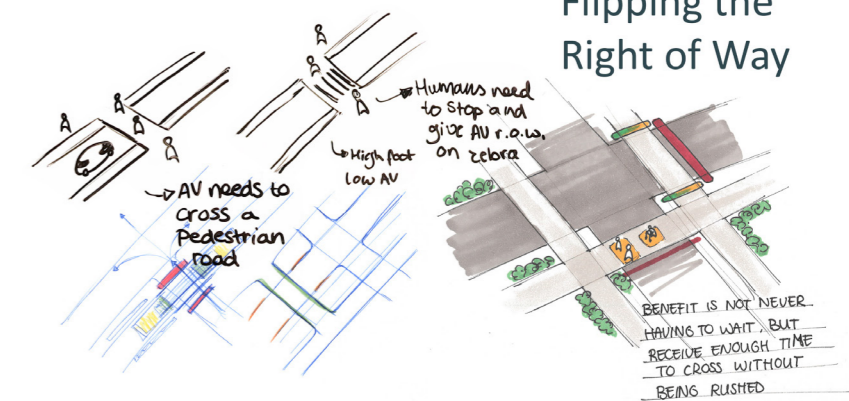 Flipping the
Right of Way
Humans need
to stop and
give AV r.o.w.
on zebra
High foot
low AV
AV needs to
cross a
Pedestrian
road
BENEFIT IS NOT NEVER
HAVING TO WAIT, BUT
RECEIVE ENOUGH TIME
TO CROSS WITHOUT
BEING RUSHED